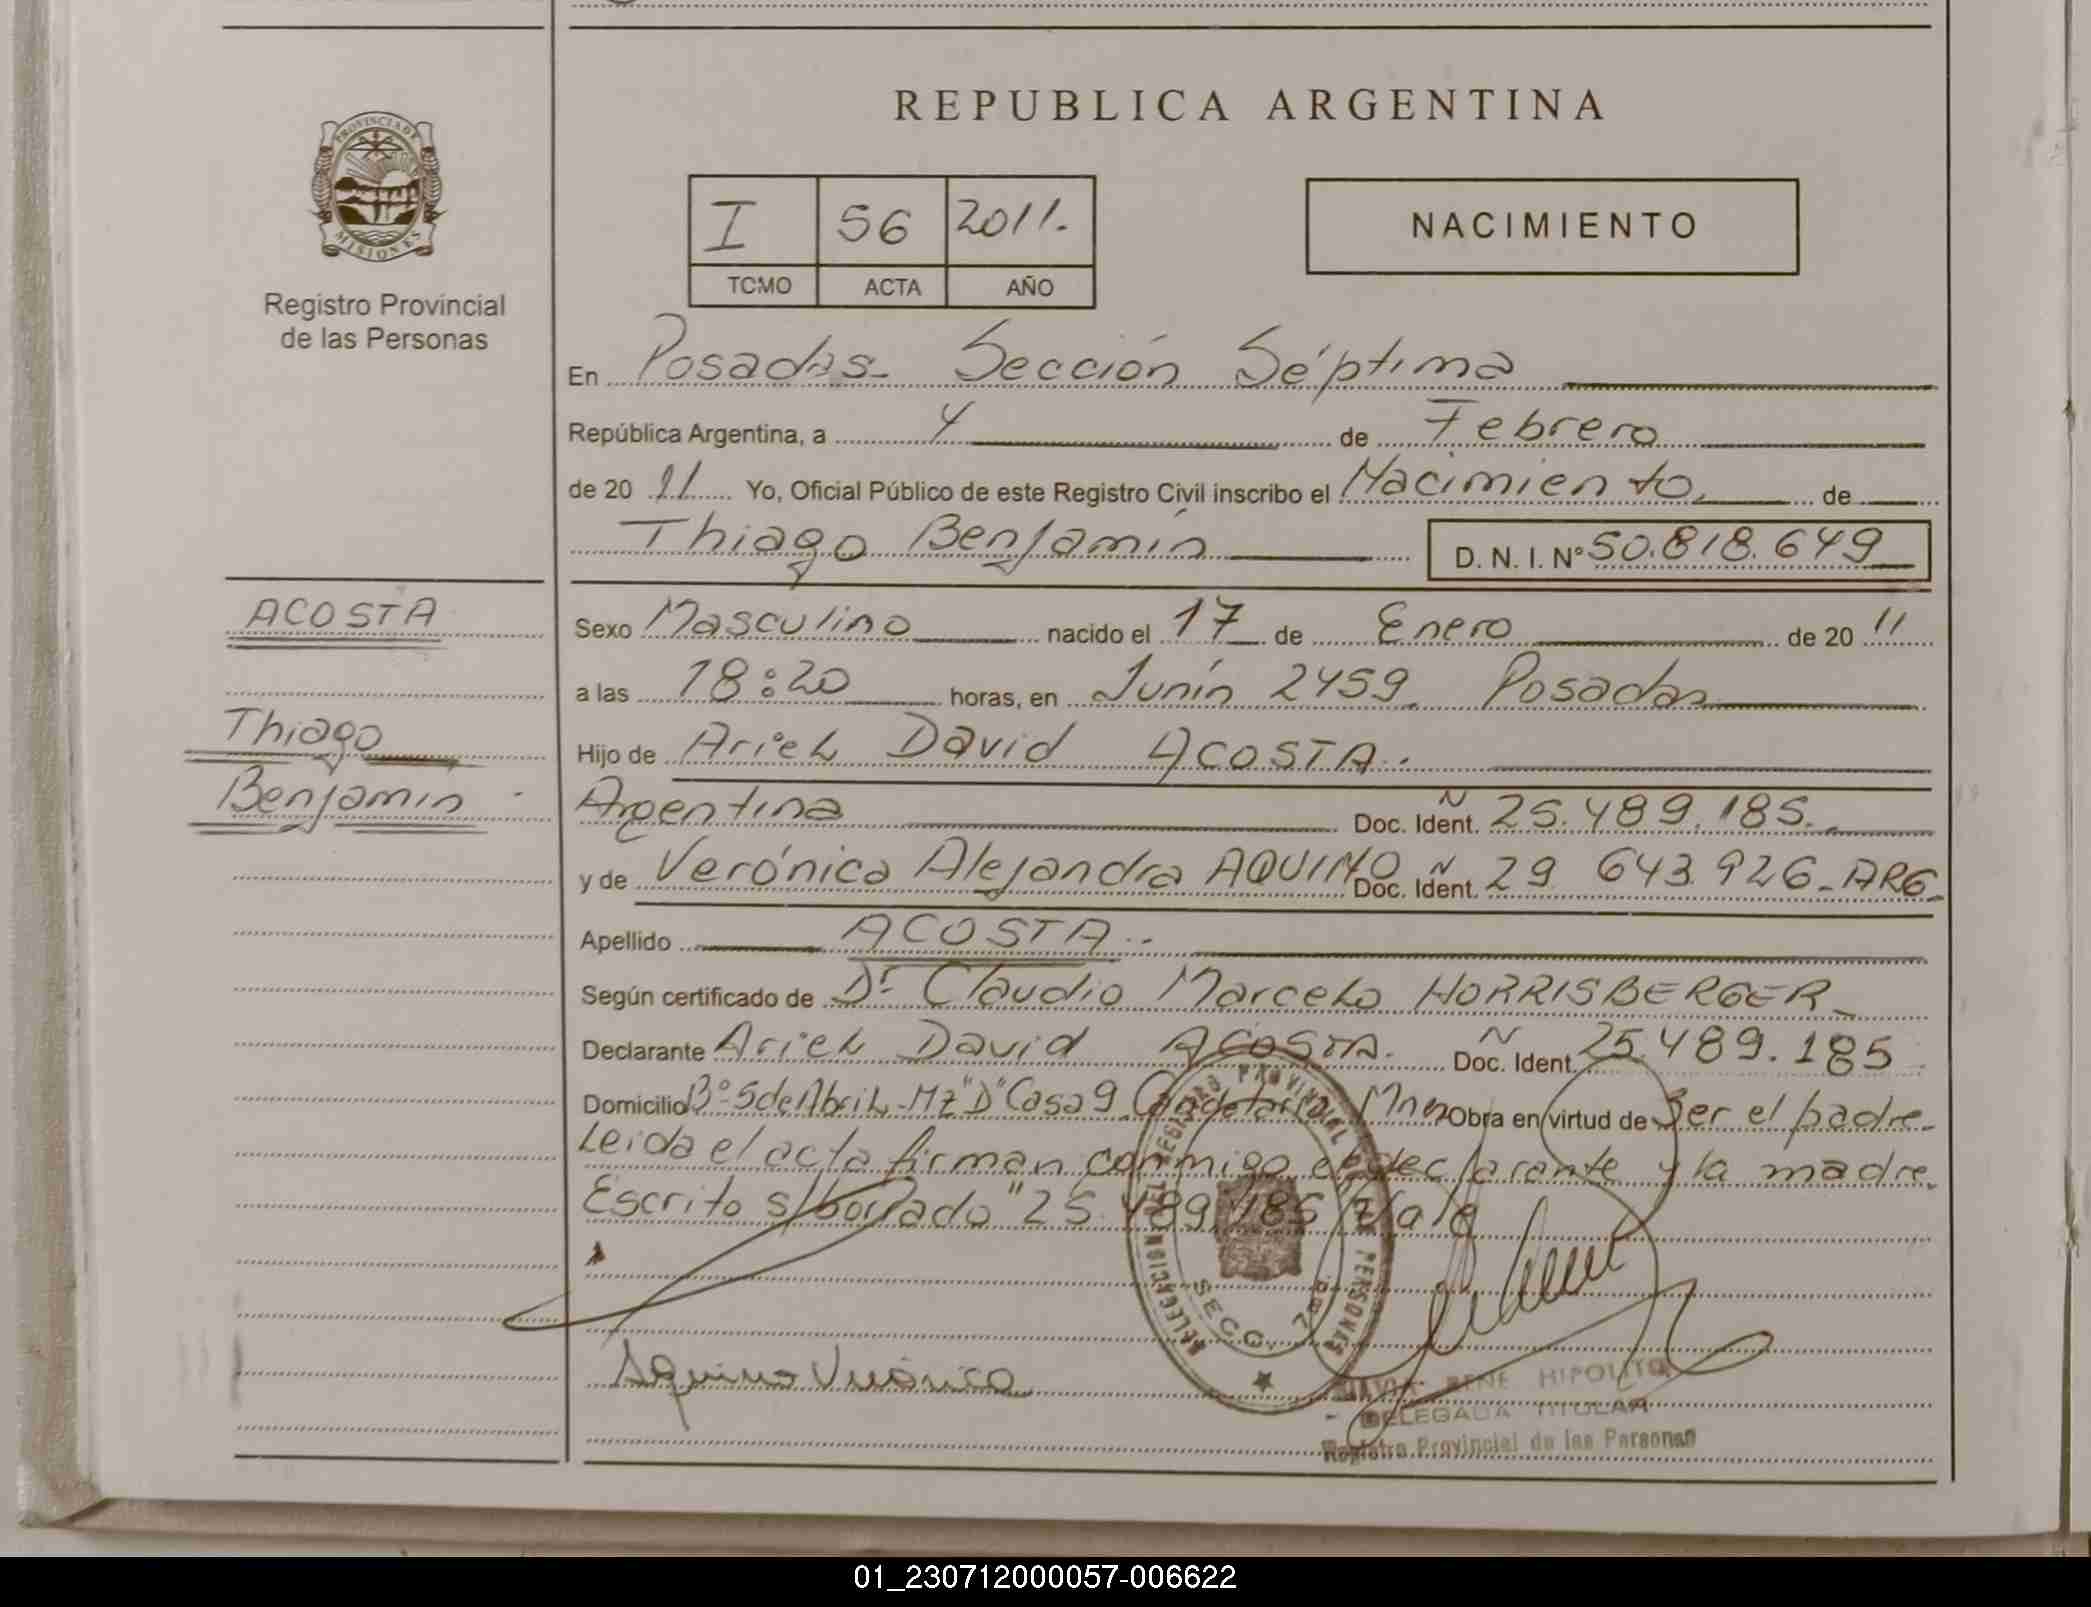 REPUBLICA ARGENTINA
PROVINCIA DE MISIONES
Registro Provincial
de las Personas
I 56 2011.
TOMO ACTA AÑO
NACIMIENTO
En Posadas- Sección Séptima
República Argentina, a 4 de Febrero
de 20 11 Yo, Oficial Público de este Registro Civil inscribo el Nacimiento de
Thiago Benjamín D. N. I. Nº 50.818.649
ACOSTA
Thiago
Benjamin
Sexo Masculino nacido el 17 de Enero de 20 11
a las 18:20 horas, en Junín 2459. Posadas
Hijo de Ariel David ACOSTA.
Argentina Doc. Ident. Ñ 25.489.185.
y de Verónica Alejandra AQUINO Doc. Ident. Ñ 29 643.926-ARG-
Apellido ACOSTA..
Según certificado de Dr Claudio Marcelo HORRISBERGER-
Declarante Ariel David ACOSTA. Doc. Ident. Ñ 25.489.185
Domicilio Bº 5 de Abril-Mz "D" Casa 9 Candelaria Mnes Obra en virtud de Ser el padre-
Leida el acta firman conmigo el declarante y la madre.
Escrito s/borrado "25.489.185" Vale
Aquino Verónica
DELEGACION REGISTRO PROVINCIAL DE PERSONAS
SECC. 7
SILVIA RENE HIPOLITO
DELEGADA TITULAR
Registro Provincial de las Personas
01_230712000057-006622